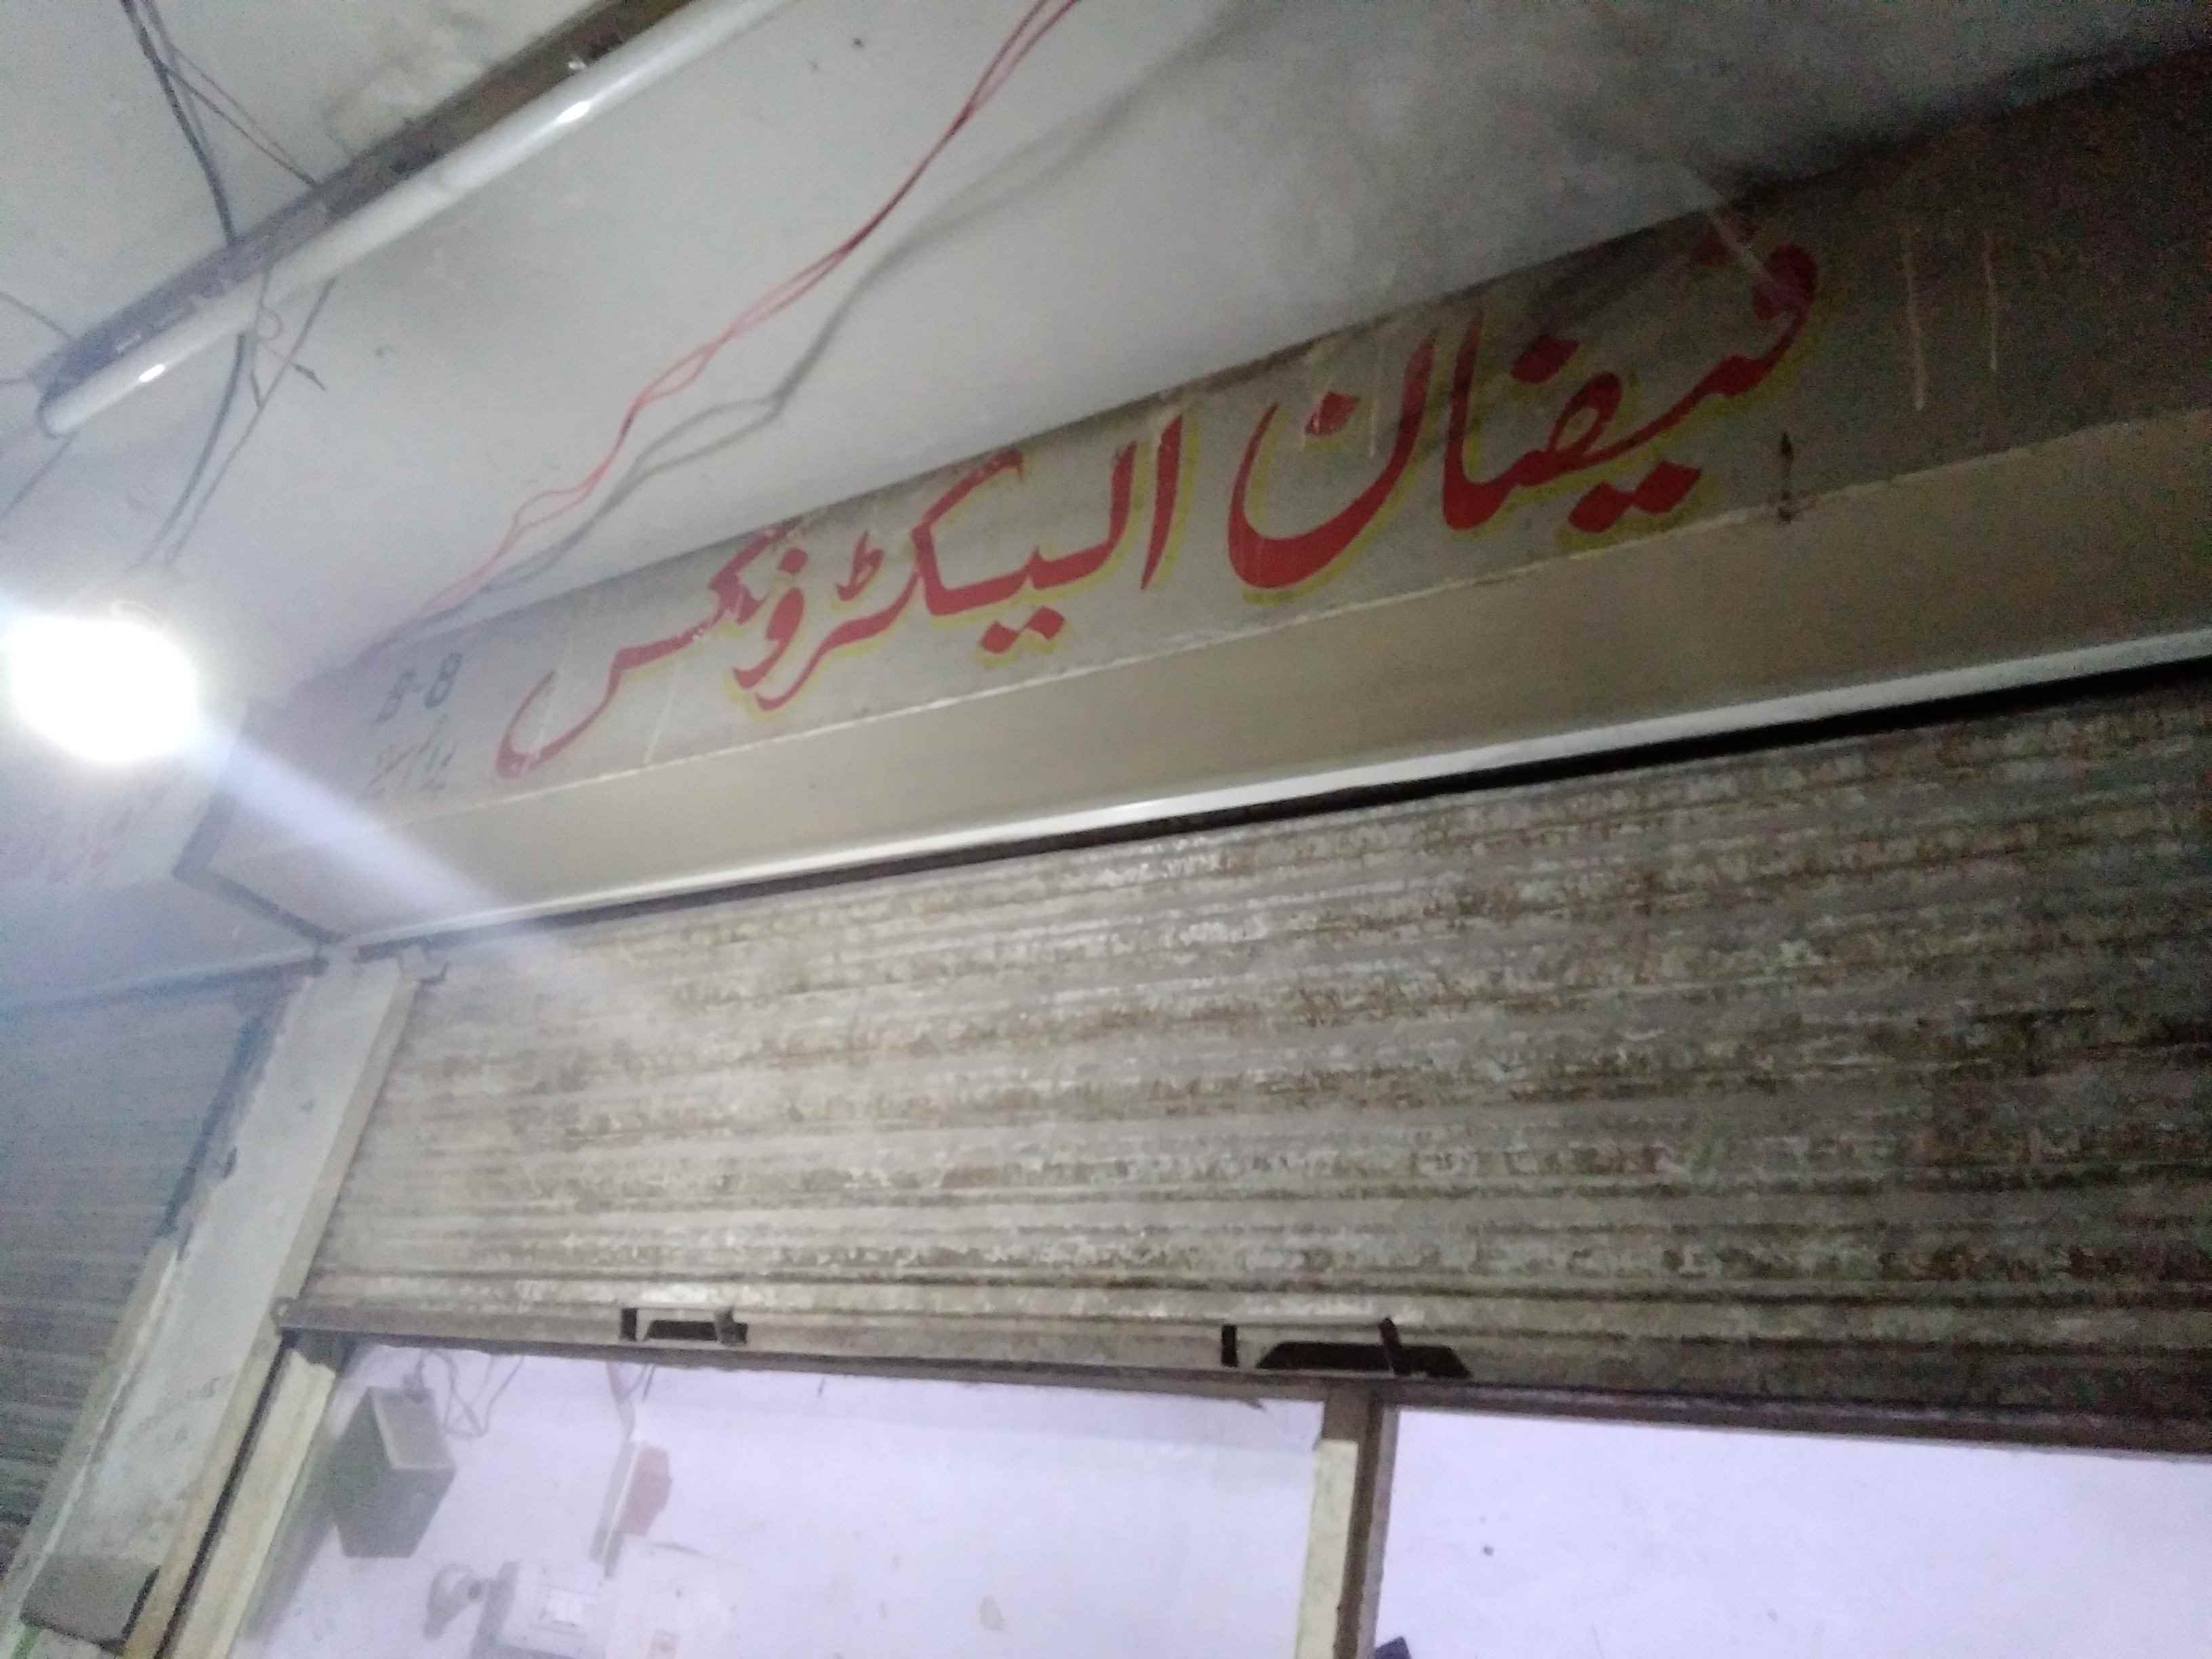 فیضان الیکٹرونکس
B-8